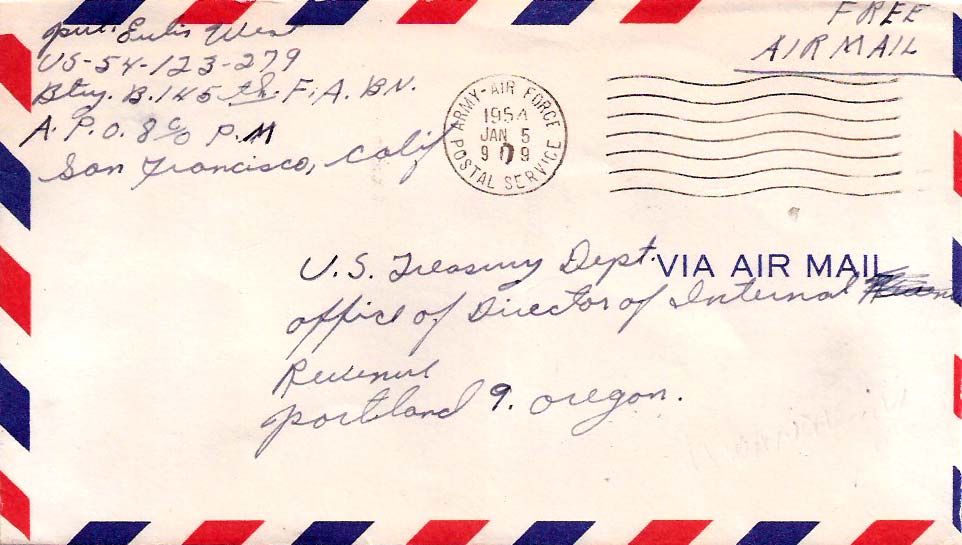 Pvt. Eulis West
US-54-123-279
Btry. B. 145 th. F.A. BN.
A.P.O. 8 c/o P.M
San Francisco, Calif
FREE
AIR MAIL
ARMY-AIR FORCE
1954
JAN 5
9 9
POSTAL SERVICE
U.S. Treasury Dept.
VIA AIR MAIL
office of Director of Internal
Revenue
Portland 9. oregon.